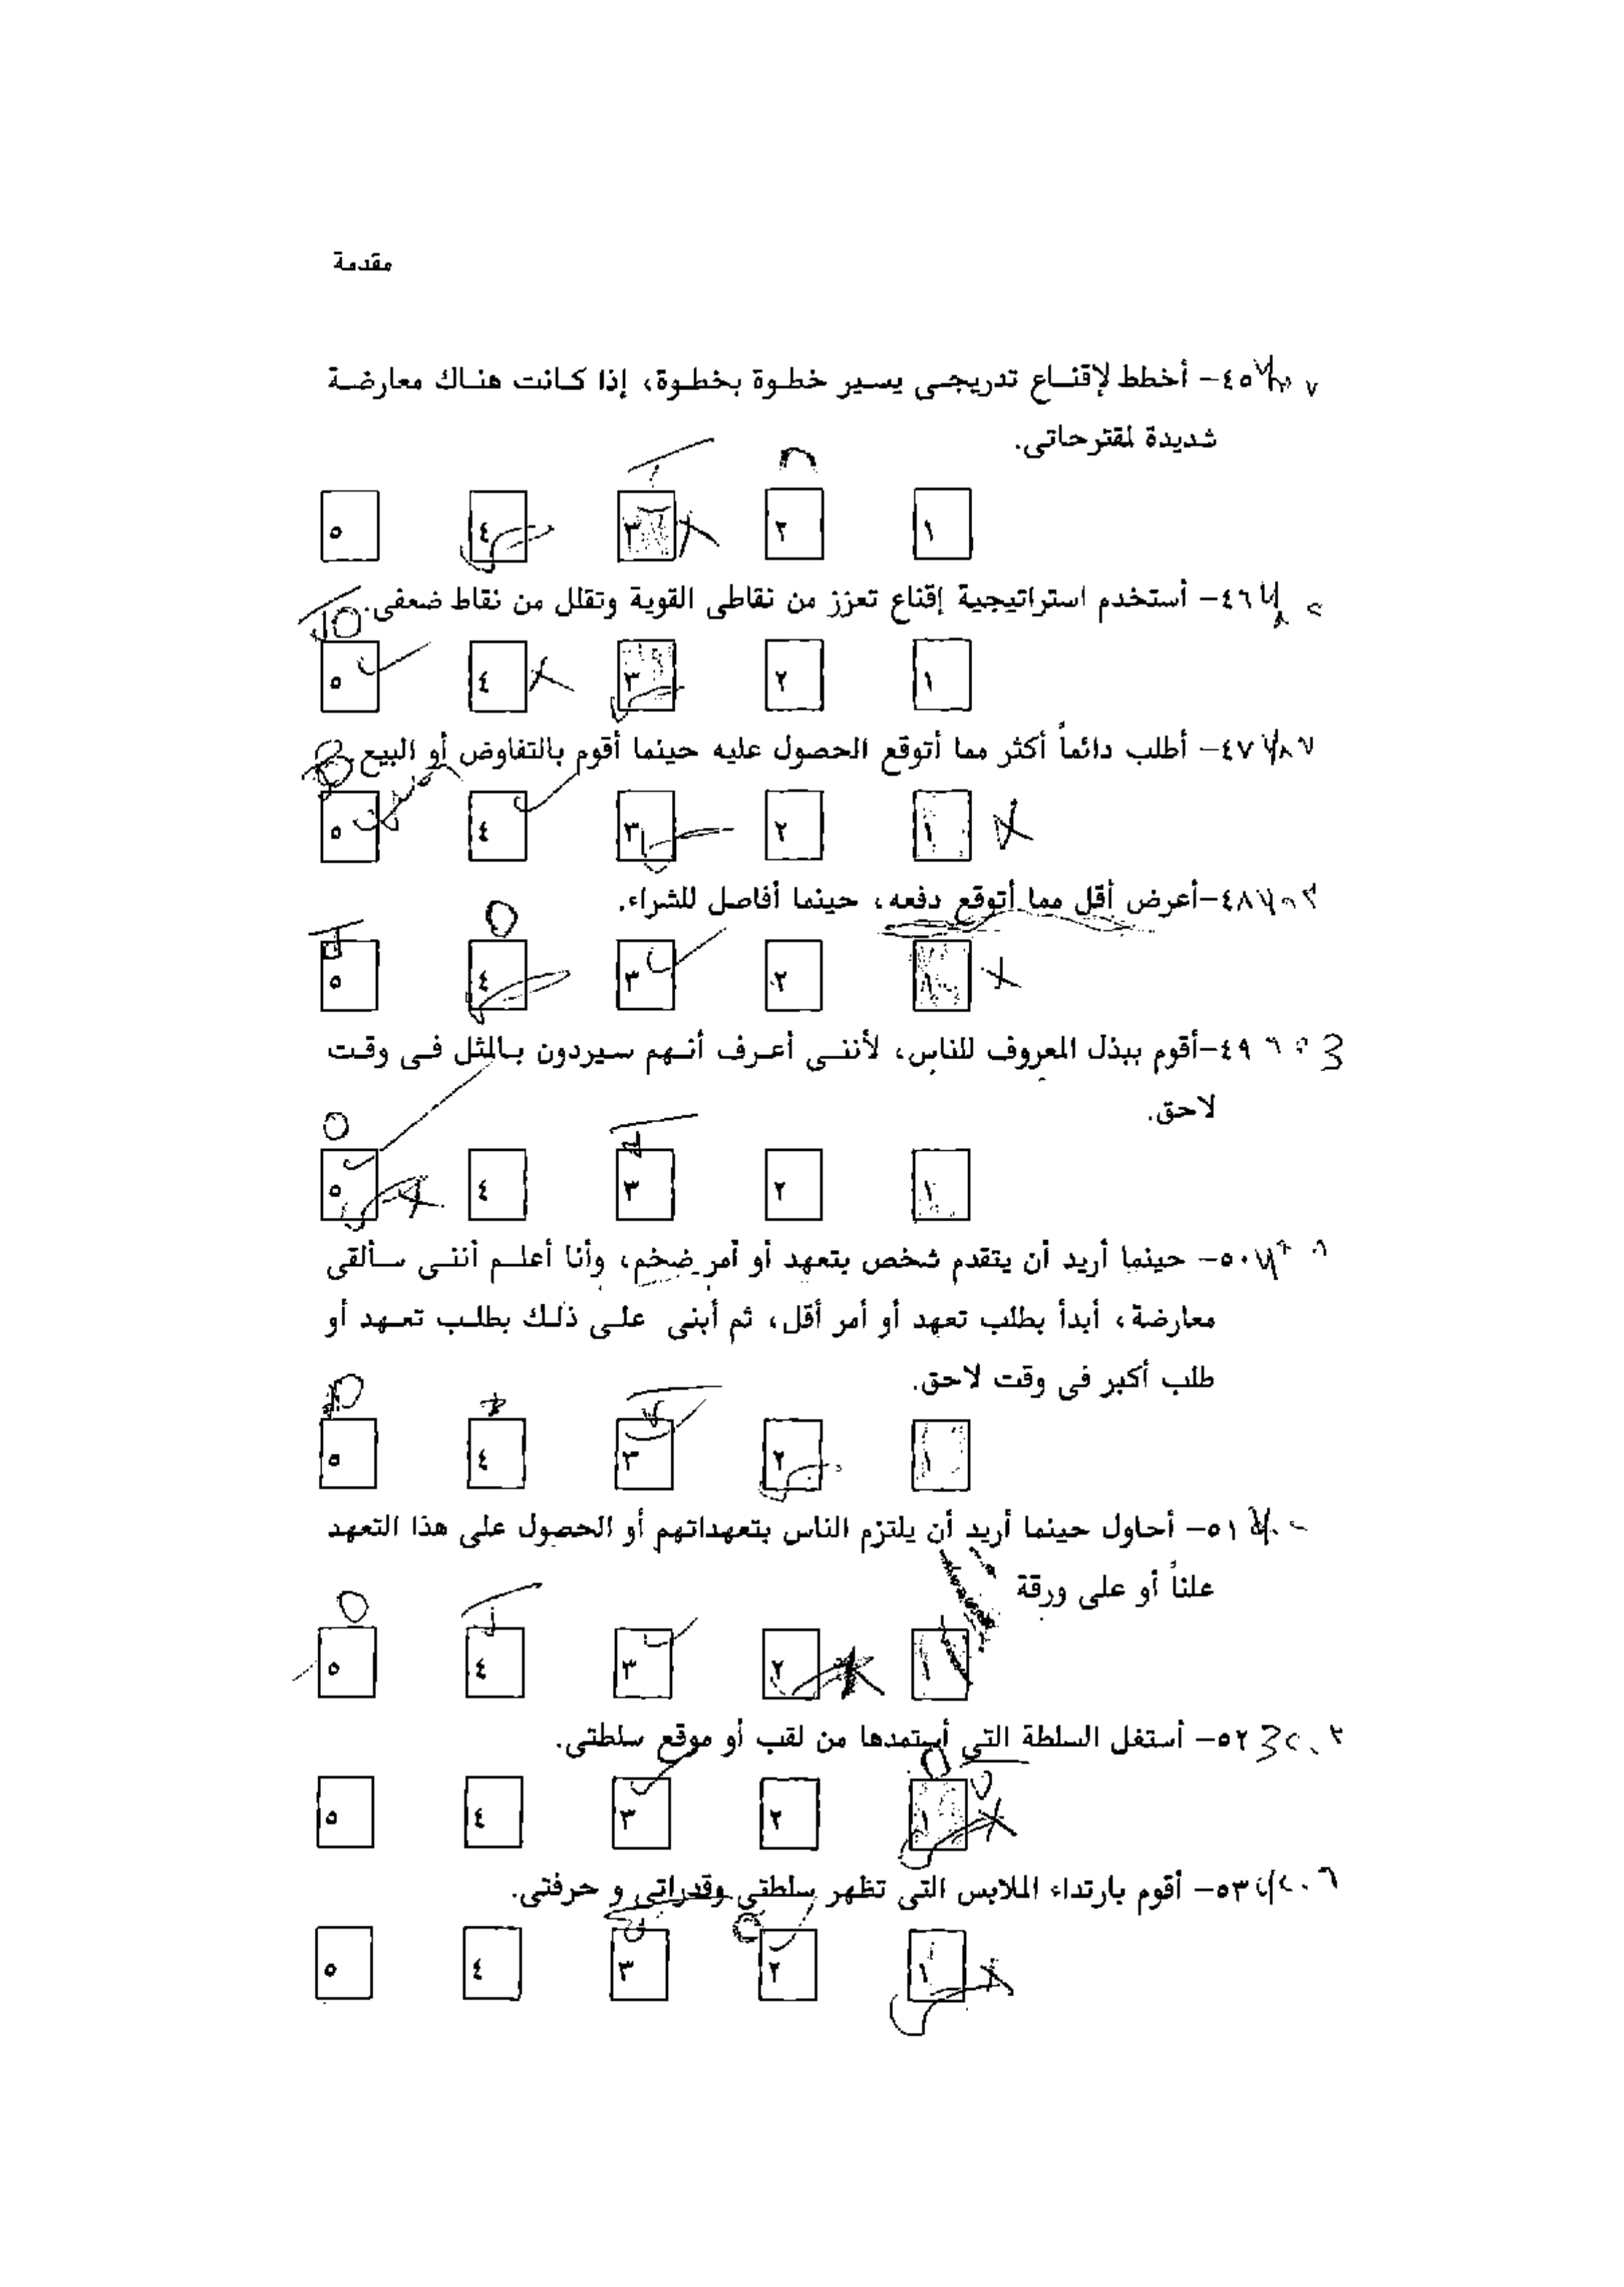 مقدمة
٤٥- أخطط لإقناع تدريجى يسير خطوة بخطوة، إذا كانت هناك معارضة
شديدة لمقترحاتى.
١ ٢ ٣ ٤ ٥
٤٦- أستخدم استراتيجية إقناع تعزز من نقاطى القوية وتقلل من نقاط ضعفى.
١ ٢ ٣ ٤ ٥
٤٧- أطلب دائماً أكثر مما أتوقع الحصول عليه حينما أقوم بالتفاوض أو البيع.
١ ٢ ٣ ٤ ٥
٤٨-أعرض أقل مما أتوقع دفعه، حينما أفاصل للشراء.
١ ٢ ٣ ٤ ٥
٤٩-أقوم ببذل المعروف للناس، لأننى أعرف أنهم سيردون بالمثل فى وقت
لاحق.
١ ٢ ٣ ٤ ٥
٥٠- حينما أريد أن يتقدم شخص بتعهد أو أمر ضخم، وأنا أعلم أننى سألقى
معارضة، أبدأ بطلب تعهد أو أمر أقل، ثم أبنى على ذلك بطلب تعهد أو
طلب أكبر فى وقت لاحق.
١ ٢ ٣ ٤ ٥
٥١- أحاول حينما أريد أن يلتزم الناس بتعهداتهم أو الحصول على هذا التعهد
علناً أو على ورقة
١ ٢ ٣ ٤ ٥
٥٢- أستغل السلطة التى أستمدها من لقب أو موقع سلطتى.
١ ٢ ٣ ٤ ٥
٥٣- أقوم بارتداء الملابس التى تظهر سلطتى وقدراتى و حرفتى.
١ ٢ ٣ ٤ ٥